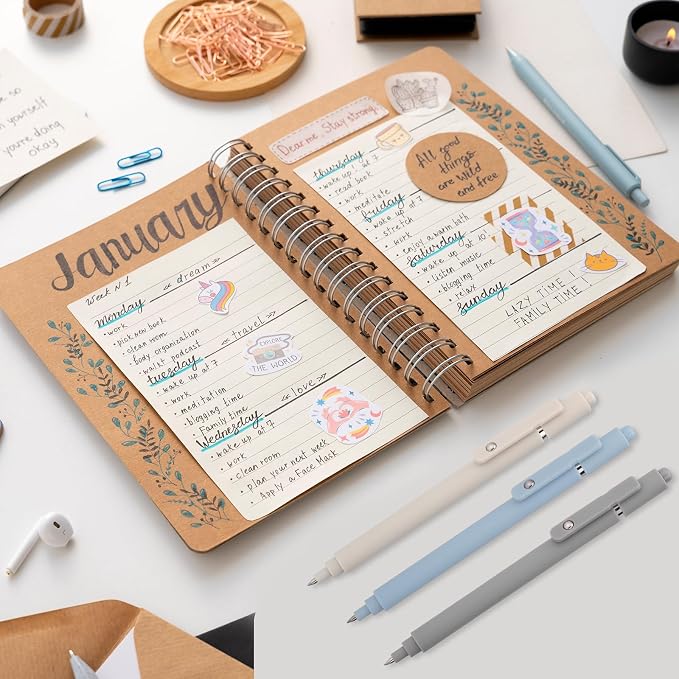 so
yourself
you're doing
okay
January
Week N1
Monday
<< dream >>
• work
• pick new book
• clean room
• body organization
• walnt podcast
Tuesday
<< travel >>
• wake up at 7
• work
• meditation
• blogging time
• Family time
Wednesday
<< love >>
• wake up at 7
• work
• clean room
• plan your next week
• Apply a Face Mask
EXPLORE
THE WORLD
Dear me, Stay strong.
thursday
• wake up ! at 7
• read book
• work
• meditate
friday
• wake up at 7
• stretch
• work
• enjoy a warm bath
Saturday
• wake up at 10
• listen music
• blogging time
• relax
Sunday
LAZY TIME !
FAMILY TIME
All good
things
are wild
and free